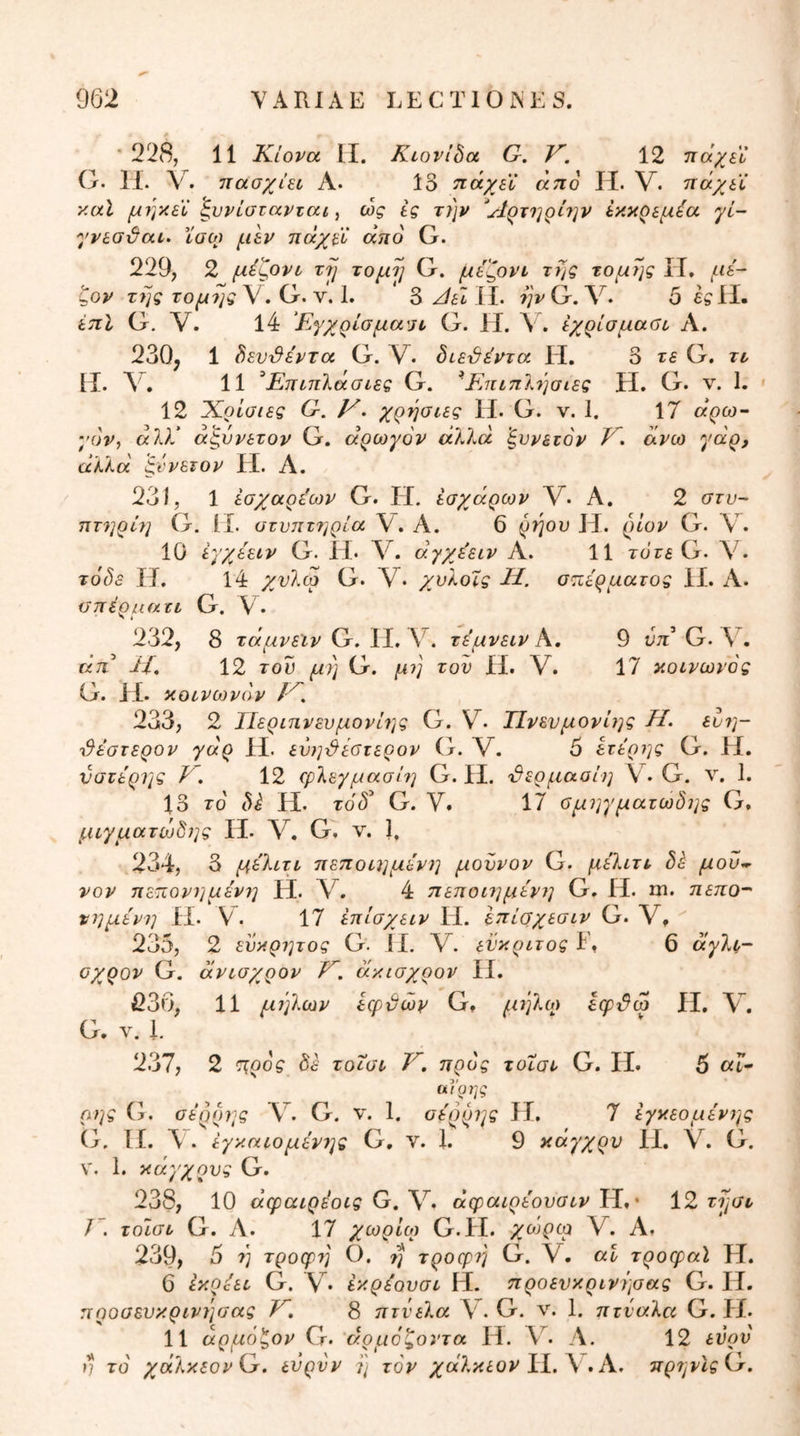 962 VARIAE LECTIONES.
228, 11 Κίονα H. Κιονίδα G. V. 12 πάχεϊ
G. H. V. πασχίει A. 13 πάχεϊ ἀπὸ H. V. πάχεϊ
καὶ μήκεϊ ξυνίστανται, ὡς ἐς τὴν Ἀρτηρίην ἐκκρεμέα γί-
γνεσθαι. ἴσῳ μὲν πάχεϊ ἀπὸ G.
229, 2 μέζονι τῇ τομῇ G. μέζονι τῆς τομῆς H. μέ-
ζον τῆς τομῆς V. G. v. 1. 3 Δεῖ H. ἢν G. V. 5 ἐς H.
ἐπὶ G. V. 14 Ἐγχρίσμασι G. H. V. ἐχρίσμασι A.
230, 1 δευθέντα G. V. διεθέντα H. 3 τε G. τι
H. V. 11 Ἐπιπλάσιες G. Ἐπιπλήσιες H. G. v. 1.
12 Χρίσιες G. V. χρήσιες H. G. v. 1. 17 ἀρω-
γὸν, ἀλλ' ἀξύνετον G. ἀρωγὸν ἀλλὰ ξυνετὸν V. ἄνω γὰρ,
ἀλλὰ ξύνετον H. A.
231, 1 ἐσχαρέων G. H. ἐσχάρων V. A. 2 στυ-
πτηρίη G. H. στυπτηρία V. A. 6 ῥήου H. ῥίον G. V.
10 ἐγχέειν G. H. V. ἀγχέειν A. 11 τότε G. V.
τόδε H. 14 χυλῷ G. V. χυλοῖς H. σπέρματος H. A.
σπέρματι G. V.
232, 8 τάμνειν G. H. V. τέμνειν A. 9 ὑπ' G. V.
ἀπ' H. 12 τοῦ μὴ G. μὴ τοῦ H. V. 17 κοινωνὸς
G. H. κοινωνὸν V.
233, 2 Περιπνευμονίης G. V. Πνευμονίης H. εὐη-
θέστερον γὰρ H. εὐηθέστερον G. V. 5 ἑτέρης G. H.
ὑστέρης V. 12 φλεγμασίη G. H. θερμασίη V. G. v. 1.
13 τὸ δὲ H. τόδ' G. V. 17 σμηγματώδης G.
μιγματώδης H. V. G. v. 1.
234, 3 μέλιτι πεποιημένη μοῦνον G. μέλιτι δὲ μοῦ-
νον πεπονημένη H. V. 4 πεποιημένη G. H. m. πεπο-
νημένη H. V. 17 ἐπίσχειν H. ἐπίσχεσιν G. V.
235, 2 εὔκρητος G. H. V. εὔκριτος F. 6 ἄγλι-
σχρον G. ἄνισχρον V. ἄκισχρον H.
236, 11 μήλων ἑφθῶν G. μήλῳ ἑφθῷ H. V.
G. v. 1.
237, 2 πρὸς δὲ τοῖσι V. πρὸς τοῖσι G. H. 5 αἴ-
αἴρης
ρης G. σέῤῥης V. G. v. 1. σέῤῥης H. 7 ἐγκεομένης
G. H. V. ἐγκαιομένης G. v. 1. 9 κάγχρυ H. V. G.
v. 1. κάγχρυς G.
238, 10 ἀφαιρέοις G. V. ἀφαιρέουσιν H. 12 τῇσι
V. τοῖσι G. A. 17 χωρίῳ G. H. χώρῳ V. A.
239, 5 ἡ τροφὴ O. ᾗ τροφὴ G. V. αἱ τροφαὶ H.
6 ἐκρέει G. V. ἐκρέουσι H. προευκρινήσας G. H.
προσευκρινήσας V. 8 πτύελα V. G. v. 1. πτύαλα G. H.
11 ἁρμόζον G. ἁρμόζοντα H. V. A. 12 εὐρὺ
ἢ τὸ χάλκεον G. εὐρὺν ἢ τὸν χάλκεον H. V. A. πρηνὶς G.